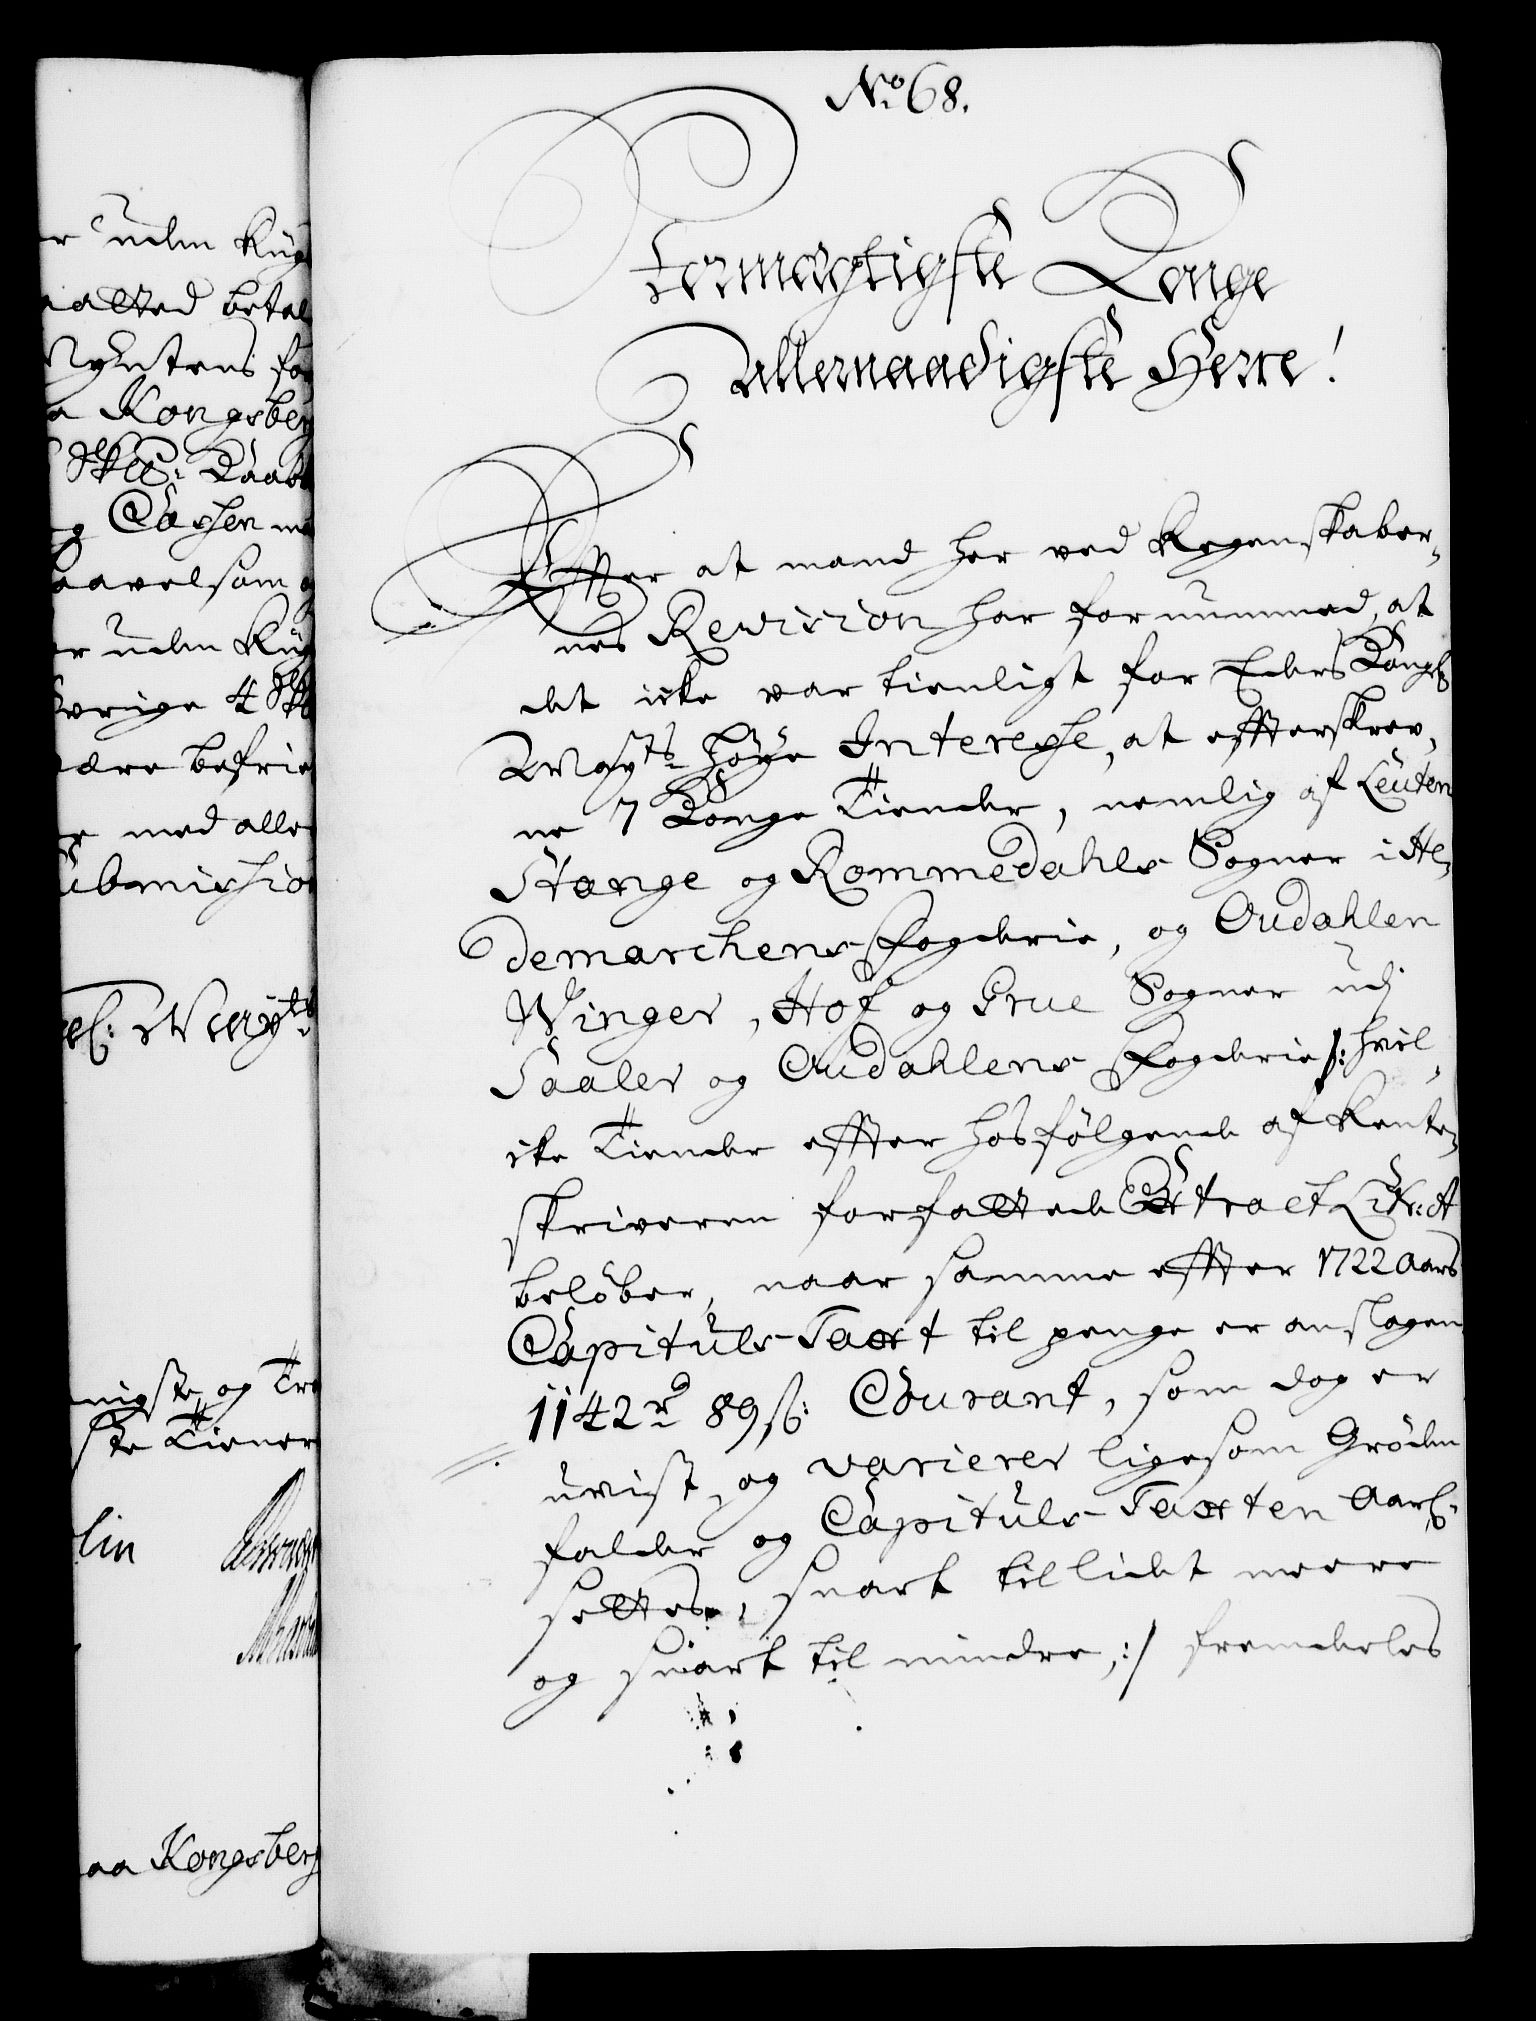 No 68.
Stormægtigste Konge
Allernaadigste Herre!
Effter at mand her ved Regenskaber-
nes Revision har fornummed, at
det icke var tienligt for Eders Kongl:
Mayts høye Interesse, at effterskrev-
ne 7 Konge Tiender, nemlig af Leuten
Stange og Rommedahls Sogner i He-
demarchens Fogderie, og Oudahlen
Winger, Hof og Grue Sogner udj
Soaler og Oudahlens Fogderie /: hvil-
cke Tiender effter hosfølgende af Rente-
skriveren forfattede Extract Litr: A
beløber, naar samme effter 1722 Aars
Capituls-Taxt til penge er anslagen
1142 rd 89 s: Courant, som dog er
uvist, og varierer ligesom Grøden
falder og Capituls-Taxten Aarl:
settes, snart til lidet meere
og snart til mindre, :/ fremdeles
r uden
betal
for
Kongsberg
og Casser
saavelsom
r uden
øvrige 4
være befrie
med alle
Submission
Mayts
nigste og Tro
ste Tiener
lin
aa Kongsberg